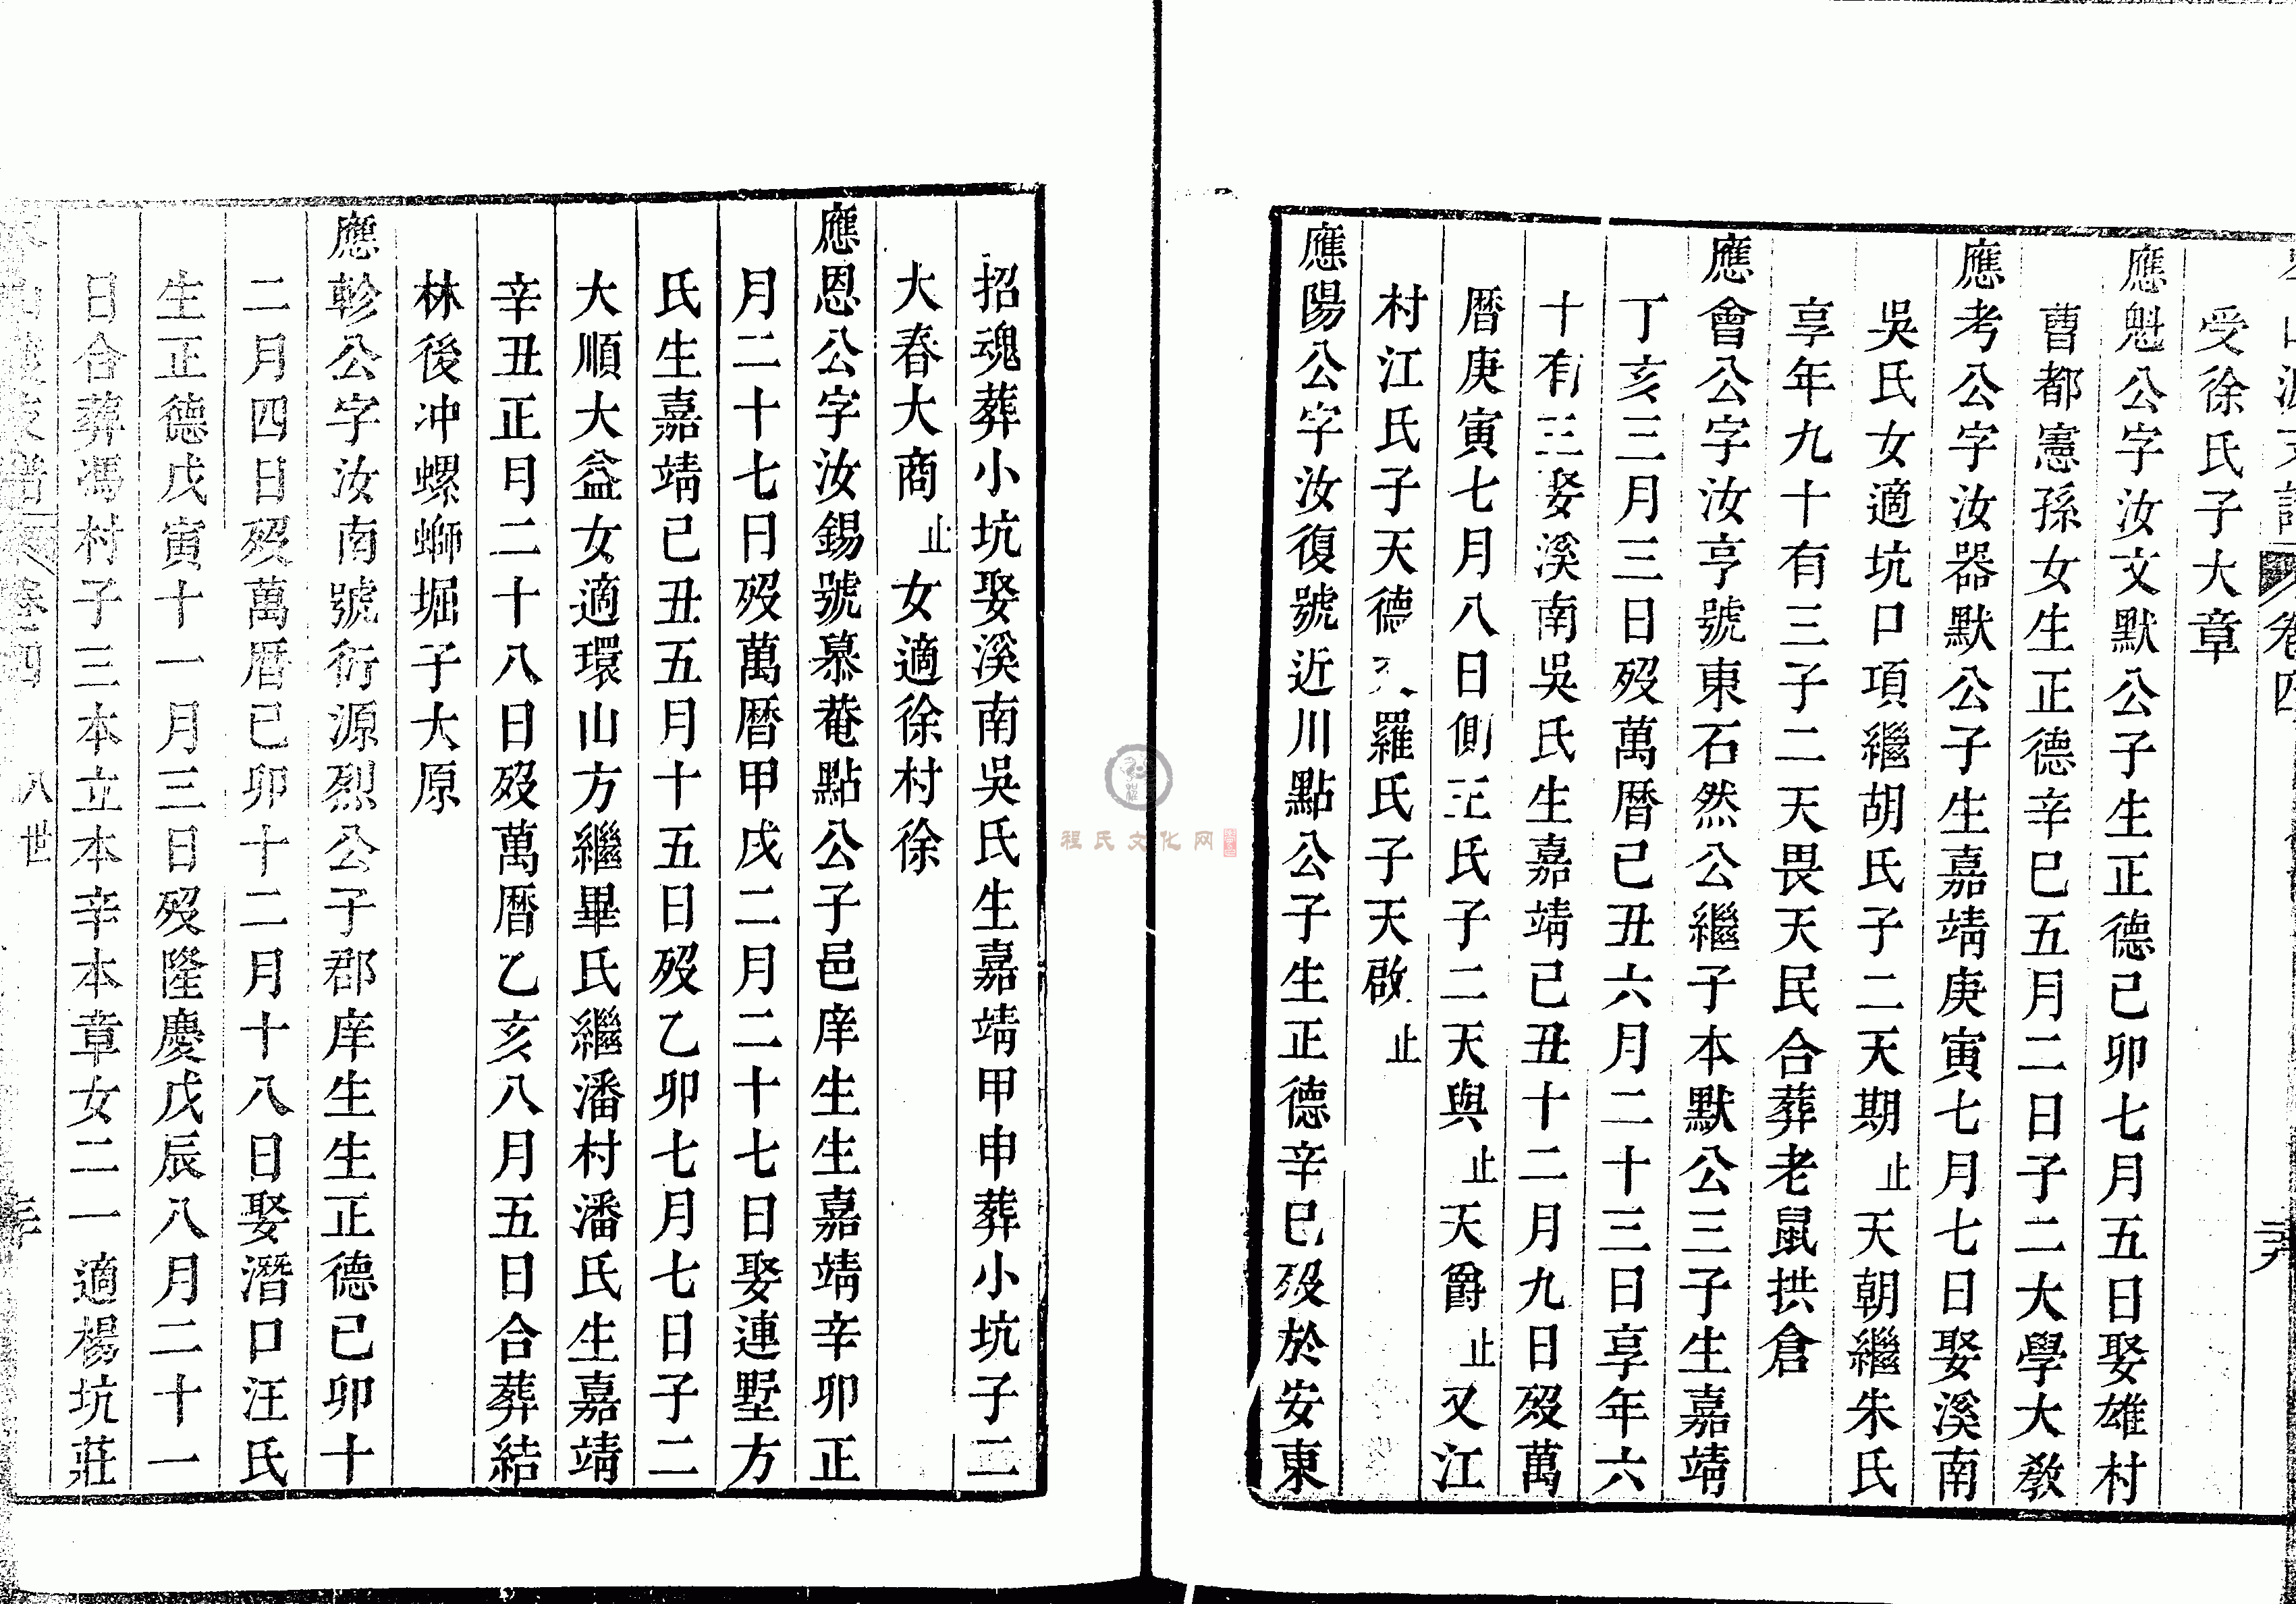 受徐氏子大章
應魁公字汝文默公子生正德己卯七月五日娶雄村
曹都憲孫女生正德辛巳五月二日子二大學大教
應考公字汝器默公子生嘉靖庚寅七月七日娶溪南
吳氏女適坑口項繼胡氏子二天期止天朝繼朱氏
享年九十有三子二天畏天民合葬老鼠拱倉
應會公字汝亨號東石然公繼子本默公三子生嘉靖
丁亥三月三日歿萬曆己丑六月二十三日享年六
十有三娶溪南吳氏生嘉靖己丑十二月九日歿萬
曆庚寅七月八日側汪氏子二天與止天爵止又江
村江氏子天德又羅氏子天啟止
應陽公字汝復號近川點公子生正德辛巳歿於安東
招魂葬小坑娶溪南吳氏生嘉靖甲申葬小坑子二
大春大商止女適徐村徐
應恩公字汝錫號慕菴點公子邑庠生生嘉靖辛卯正
月二十七日歿萬曆甲戌二月二十七日娶連墅方
氏生嘉靖己丑五月十五日歿乙卯七月七日子二
大順大益女適環山方繼畢氏繼潘村潘氏生嘉靖
辛丑正月二十八日歿萬曆乙亥八月五日合葬結
林後冲螺螄堀子大原
應軫公字汝南號衍源烈公子郡庠生生正德己卯十
二月四日歿萬曆己卯十二月十八日娶潛口汪氏
生正德戊寅十一月三日歿隆慶戊辰八月二十一
日合葬馮村子三本立本辛本章女二一適楊坑莊
卷四 八世
程氏文化网